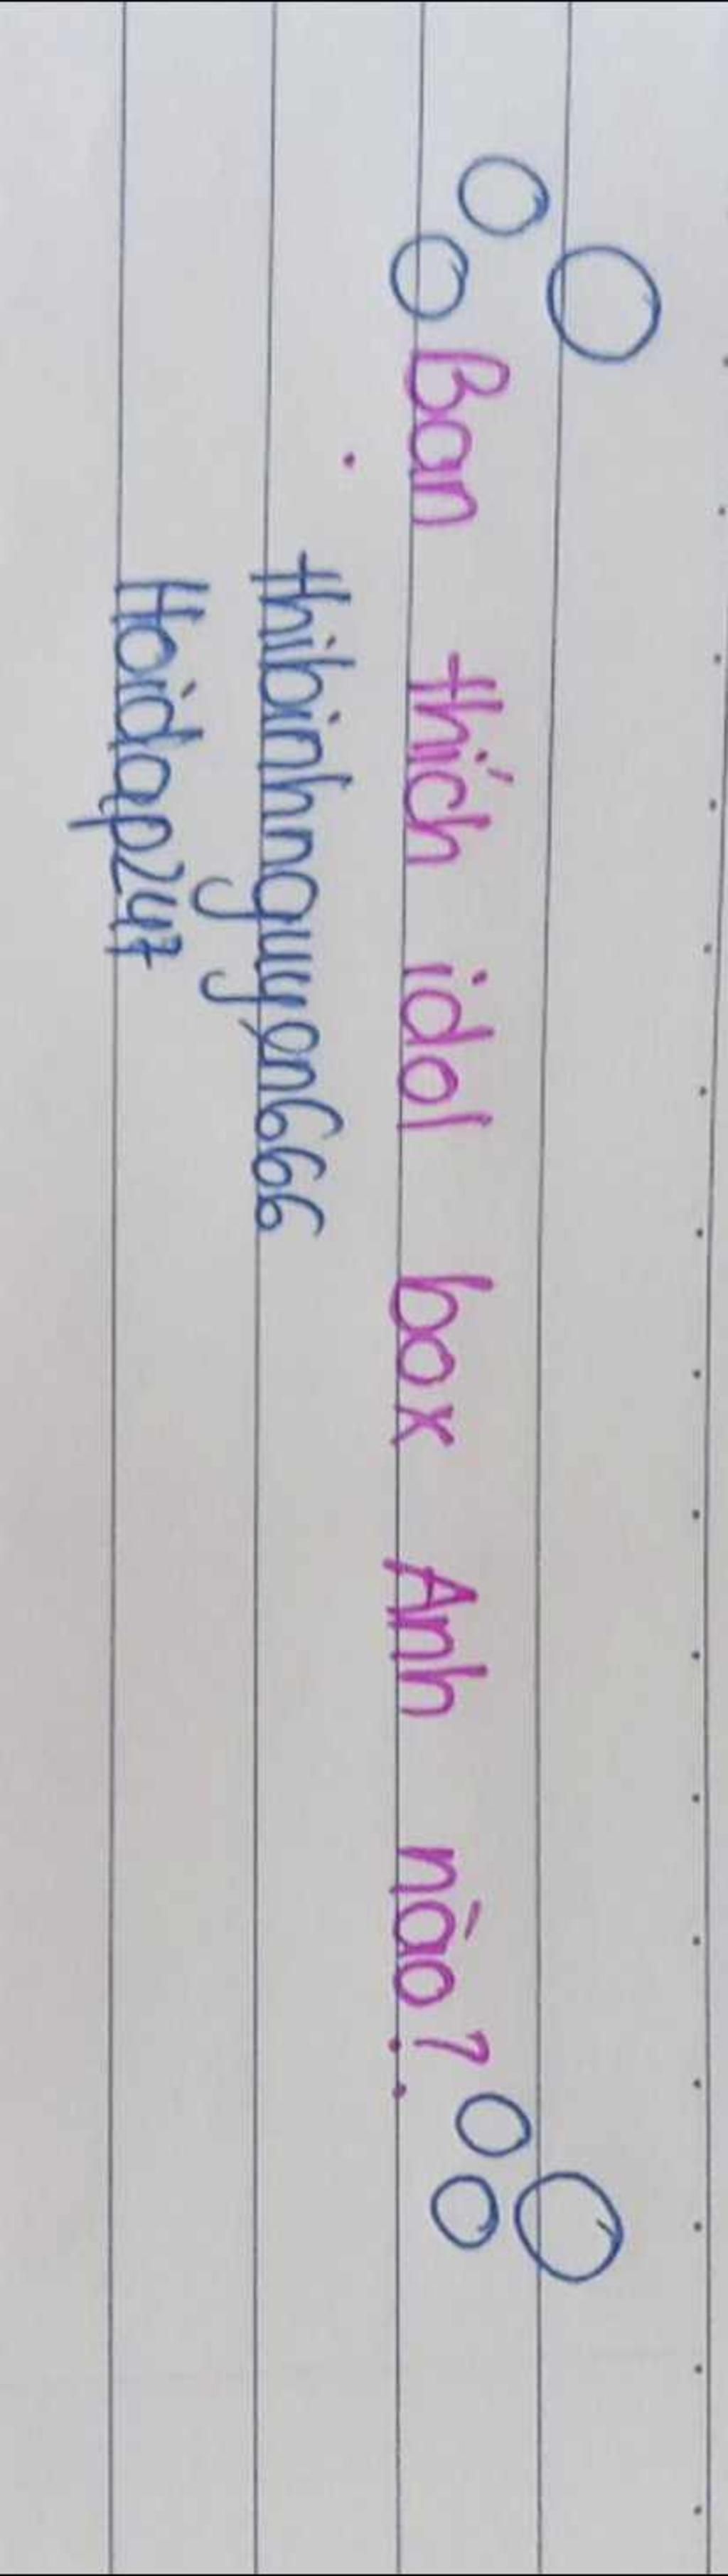 Bạn thích idol box Anh nào?
thibinhnguyen666
Hoidap247